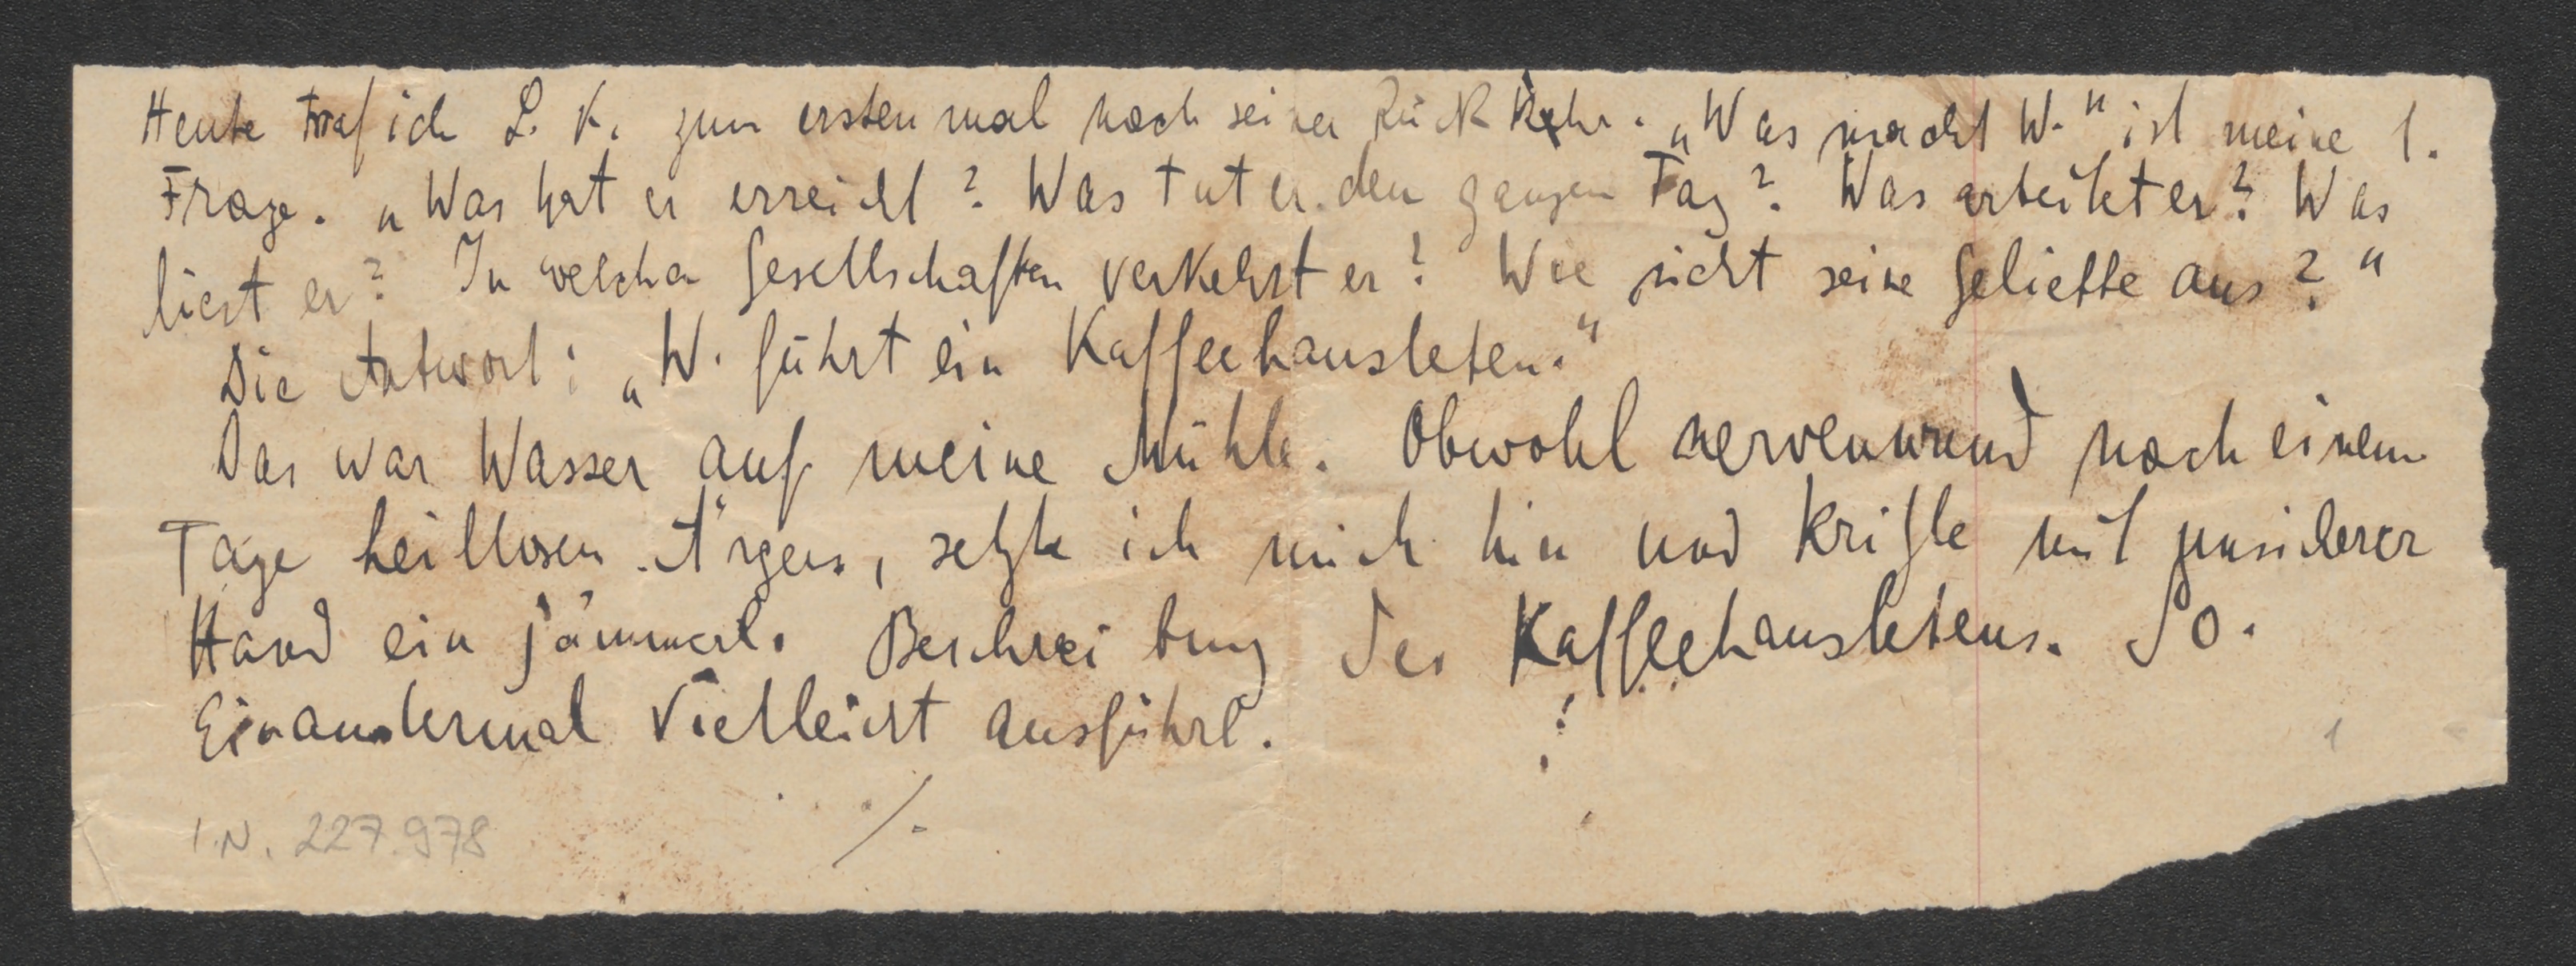 Heute traf ich L. K. zum erstenmal nach seiner Rückkehr. „Was macht W." ist meine 1.
Frage. „Was hat er erreicht? Was tut er den ganzen Tag? Was arbeitet er? Was
liest er? In welchen Gesellschaften verkehrt er? Wie sieht seine Geliebte aus?"
Die Antwort: „W. führt ein Kaffeehausleben."
Das war Wasser auf meine Mühle. Obwohl nervenwund nach einem
Tage heillosen Ärgers, setzte ich mich hin und krizle mit unsicherer
Hand ein jämmerl. Beschreibung des Kaffeehauslebens. So.
Einandermal vielleicht ausführl. !
1
I.N. 227.978 ./.